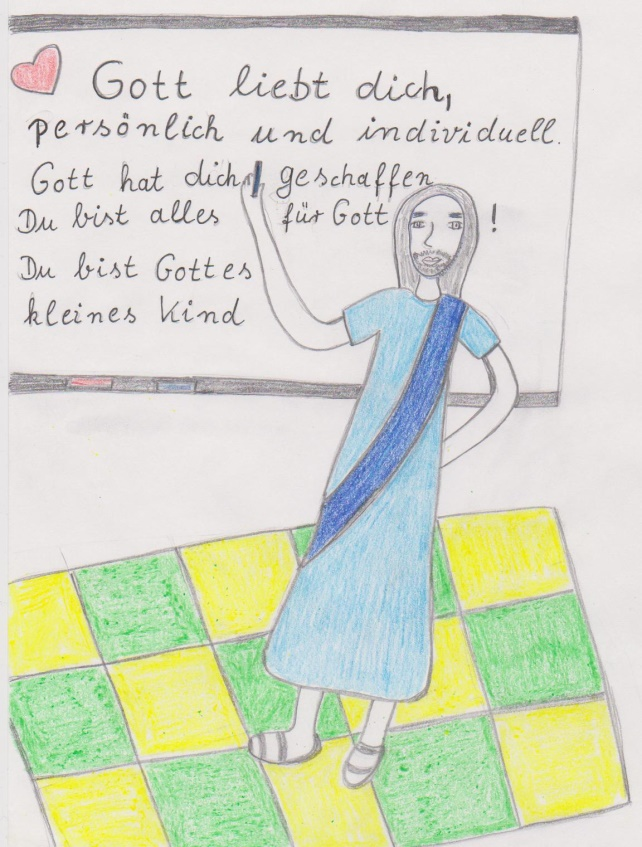 Gott liebt dich,
persönlich und individuell.
Gott hat dich geschaffen
Du bist alles für Gott !
Du bist Gottes
kleines Kind